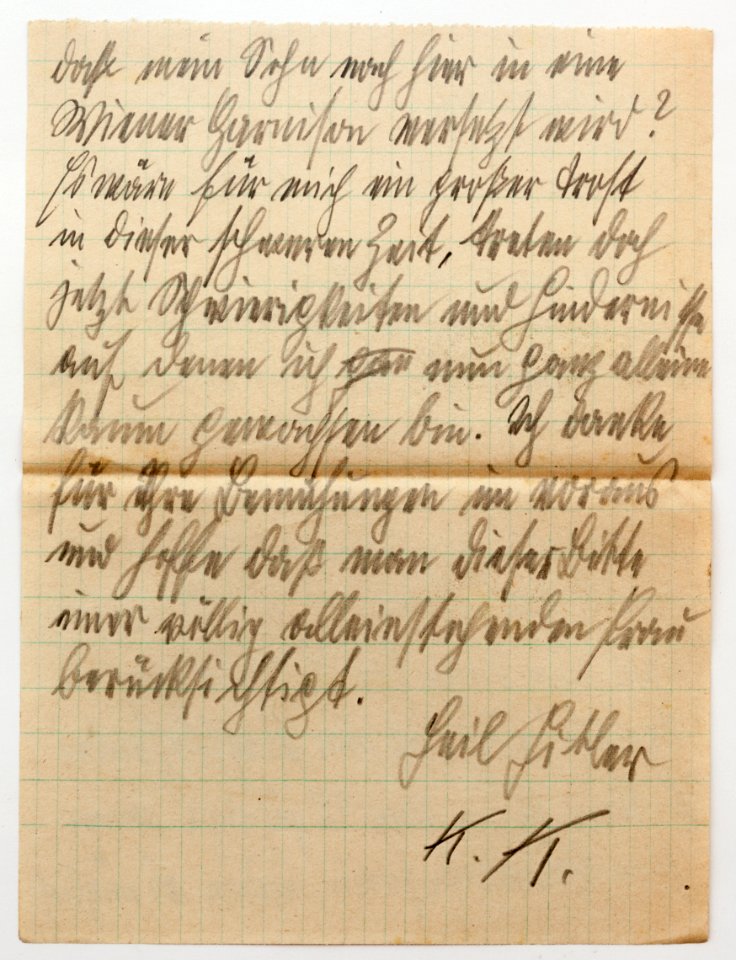 daß mein Sohn noch hier in eine
Wiener Garnison versetzt wird?
Es wäre für mich ein großer Trost
in dieser schweren Zeit, treten doch
jetzt Schwierigkeiten und Hindernisse
auf denen ich gan nun ganz alleine
kaum gewachsen bin. Ich danke
für Ihre Bemühungen im voraus
und hoffe daß man dieser Bitte
einer völlig alleinstehenden Frau
berücksichtigt.
Heil Hitler
K. K.